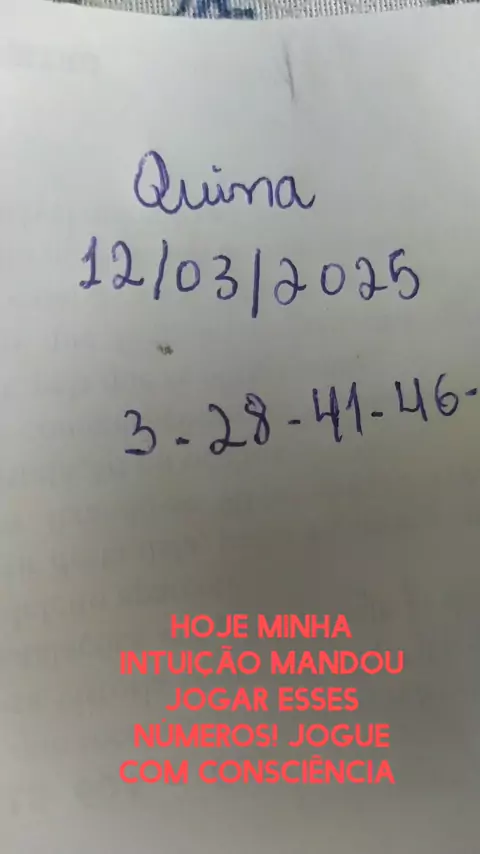 Quina
12/03/2025
3-28-41-46-
HOJE MINHA
INTUIÇÃO MANDOU
JOGAR ESSES
NÚMEROS! JOGUE
COM CONSCIÊNCIA